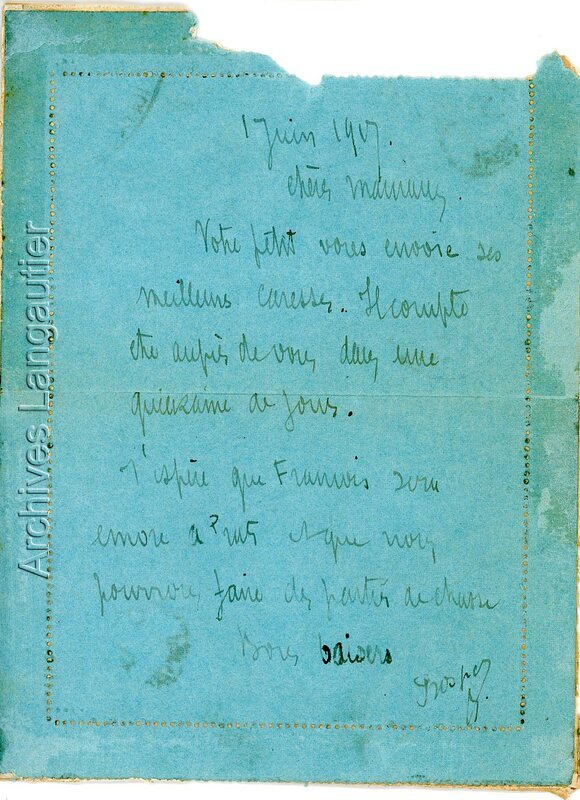 1 Juin 1917.
chères mamans,
Votre petit vous envoie ses
meilleurs caresses. Il compte
être auprès de vous dans une
quinzaine de jours.
J'espère que Francois sera
encore a et que nous
pourrons faire des parties de chasse
Bons baisers
Prosper
Archives Langautier